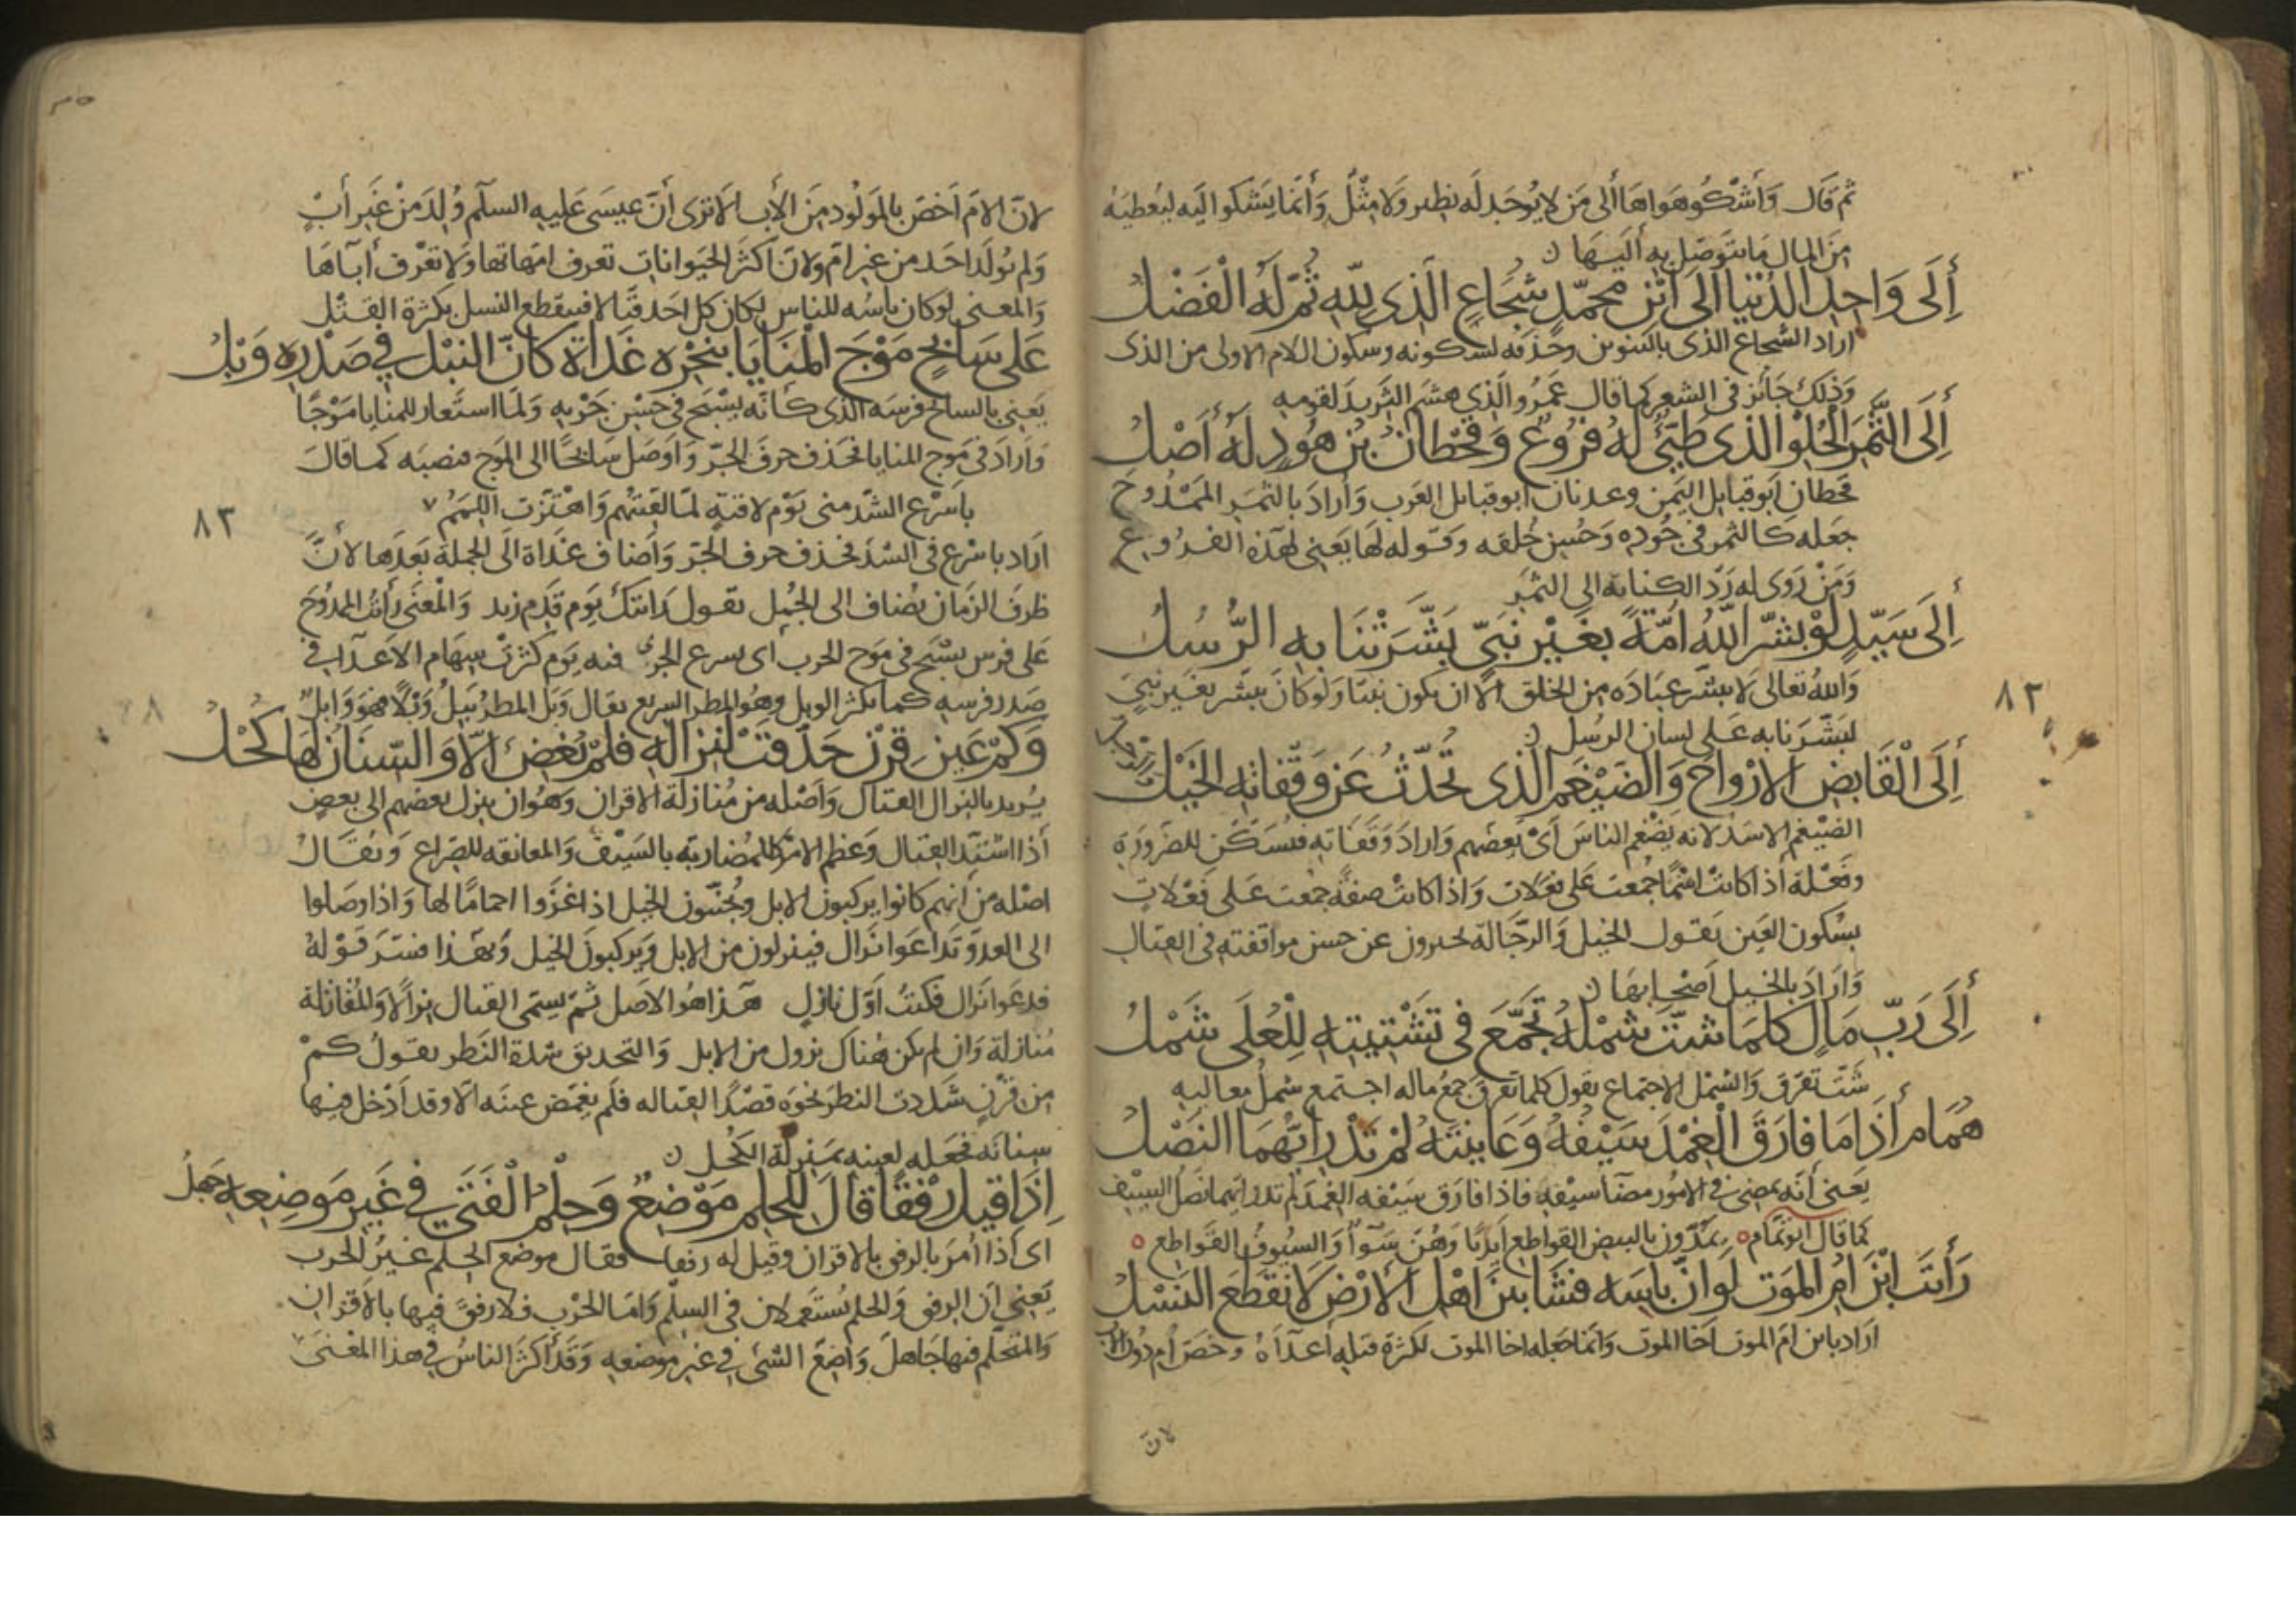 ثم قال وأشكو هواها ألى من لا يوجد له نظير ولا مثل وأنما يشكوا اليه ليعطيه
من المال ما يتوصل به أليها
أِلَى وَاحِدِ الدُنْيَا الَى ابْنِ محمّدٍ شُجَاعِ الَّذِى لِلّهِ ثُمَّ لَهُ الْفَضْلُ
اراد الشجاع الذى بالتنوين وحذفه لسكونه وسكون اللام الاولى من الذى
وذلك جائز فى الشعر كما قال عمرو الذى هشم الثريد لقومه
أِلَى الثَّمَرِ الْحُلْوِ الذى طَيّئٌ لَهُ فُرُوعٌ وَقَحْطَانُ بْنُ هُودٍ لَهُ أَصْلُ
قحطان ابو قبايل اليمن وعدنان ابو قبايل العرب وأراد بالثمر الممدوح
جعله كالثمر فى جوده وحسن خلقه وقوله لها يعنى لهذه الفروع
ومن روى له رد الكناية الى الثمر
أِلَى سَيّدٍ لَوْ بشّرَ اللّهُ أُمّةً بِغَيْرِ نَبِىّ بَشَّرَتْنَا بِهِ الرُّسُلُ
والله تعالى لا يبشر عباده من الخلق الا ان يكون نبيا ولو كان يبشر بغير نبى
لبشرنا به على لسان الرسل
٨٢
أِلَى الْقَابِضِ الارْواحَ وَالضَيْغَمِ الَّذِى تُحَدّثُ عَن وَقْفَاتِهِ الخَيْلُ
الضيغم الاسد لانه يضغم الناس أى يعضهم واراد وقفاته فسكن للضرورة
وفعلة أذا كانت اسما جمعت على فعلات واذا كانت صفة جمعت على فعلات
بسكون العين يقول الخيل والرجالة يخبرون عن حسن مواقفته فى القتال
وأراد بالخيل اصحابها
أِلَى رَبّ مَالٍ كلمَا شتّ شمْلُهُ تَجَمَّعَ فى تَشْتِيتِهِ لِلْعُلَى شَمْلُ
شت تفرق والشمل الاجتماع يقول كلما تفرق جمع ماله اجتمع شمل معاليه
هُمَام أَذَا مَا فارَقَ الْغِمْدَ سَيْفُهُ وَعَاينْتَهُ لمْ تَدْرِ ايّهُمَا النَصْلُ
يعنى أنه يمضى فى الامور مضآ سيفه فاذا فارق سيفه الغمد لم تدر ايهما نصل السيف
كما قال ابو تمام يمدون بالبيض القواطع أيديا وهن سوآ والسيوف القواطع
رَأَيتَ ابْنَ امِّ المَوْتِ لَو أَنَّ بَاسَه فشَا بَيْنَ اهْلِ الأرْضِ لانقَطَعَ النَسْلُ
اراد بابن ام الموت اخا الموت وانما جعله اخا الموت لكثرة قتله أعدآه وخص الام دون الاب
لان
لان الام اخص بالمولود من الأب الا ترى أن عيسى عليه السلم ولد من غير أب
ولم يولد احد من غير ام ولان اكثر الحيوانات تعرف امهاتها ولا تعرف أبآها
والمعنى لو كان باسه للناس لكان كل احد قتالا فينقطع النسل بكثرة القتل
عَلَى سَابحٍ مَوْجَ المْنَايَا بنَحْرِه غَدَاةَ كَأنَّ النبْلَ فِي صَدْرِه وَبْلُ
يعنى بالسابح فرسه الذى كأنه يسبح فى حسن جريه ولما استعار للمنايا موجا
وأراد فى موج المنايا فحذف حرف الجر وأوصل سابحا الى الموج فنصبه كما قال
باسرع الشد منى يوم لاقتة لما لقيتهم واهتزت اللمم
٨٣
اراد باسرع فى الشد فحذف حرف الجر وأضاف غداة الى الجملة بعدها لأن
ظرف الزمان يضاف الى الجمل تقول رايتك يوم قدم زيد والمعنى رأيت الممدوح
على فرس يسبح فى موج الحرب أى يسرع الجرى فيه يوم كثرت سهام الاعدآ فى
صدر فرسه كما يكثر الوبل وهو المطر السريع يقال وبل المطر يبل وبلا فهو وابل
وَكَمْ عَينِ قِرْنٍ حَدّقَتْ لنِزالِهِ فلمْ تُغضِ الّا وَالسّنَانُ لهَا كُحْلُ
يريد بالنزال القتال وأصله من منازلة الاقران وهو ان ينزل بعضهم الى بعض
أذا اشتد القتال وعظم الامر للمضاربة بالسيف والمعانقه للصراع ويقال
اصله من أنهم كانوا يركبون الابل ويجنبون الخيل اذا غزوا اجماما لها واذا وصلوا
الى العدو تداعوا نزال فينزلون من الابل ويركبون الخيل وبهذا فسر قوله
فدعوا نزال فكنت أول نازل هذا هو الاصل ثم سمى القتال نزالا والمقاتلة
منازلة وان لم يكن هناك نزول من الابل والتحديق شدة النظر يقول كم
من قرن شددت النظر نحوه قصدا لقتاله فلم يغمض عينه الا وقد أدخل فيها
سنانه فجعله لعينه بمنزلة الكحل
اِذَا قيلَ رفْقًا قالَ لِلْحِلْمِ مَوْضِعٌ وَحِلْمُ الْفَتَى فِي غَيرِ مَوضِعِهِ جَهلُ
اى أذا أمر بالرفق بالاقران وقيل له رفقا فقال موضع الحلم غير الحرب
يعنى ان الرفق والحلم يستعملان فى السلم واما الحرب فلا رفق فيها بالاقران
والمتحلم فيها جاهل واضع الشئ فى غير موضعه وقد أكثر الناس فى هذا المعنى